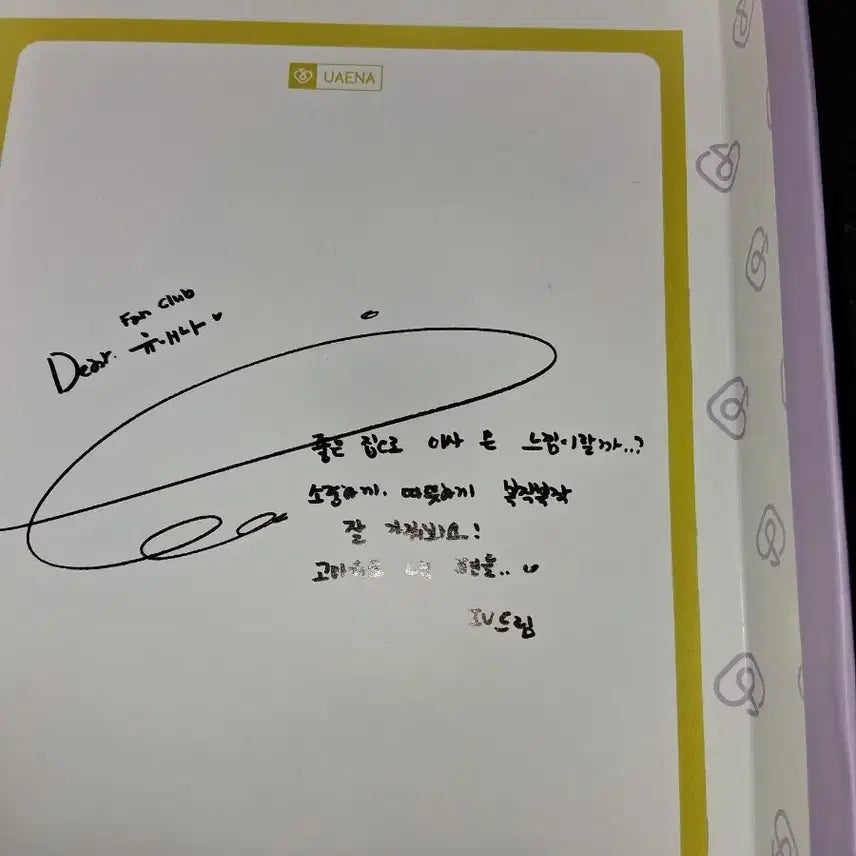 UAENA
Fan Club
Dear. 유애나
좋은 집으로 이사 온 느낌이랄까..?
소중하게. 따뜻하게 복작복작
잘 가꿔봐요!
고마워요 내
IU드림